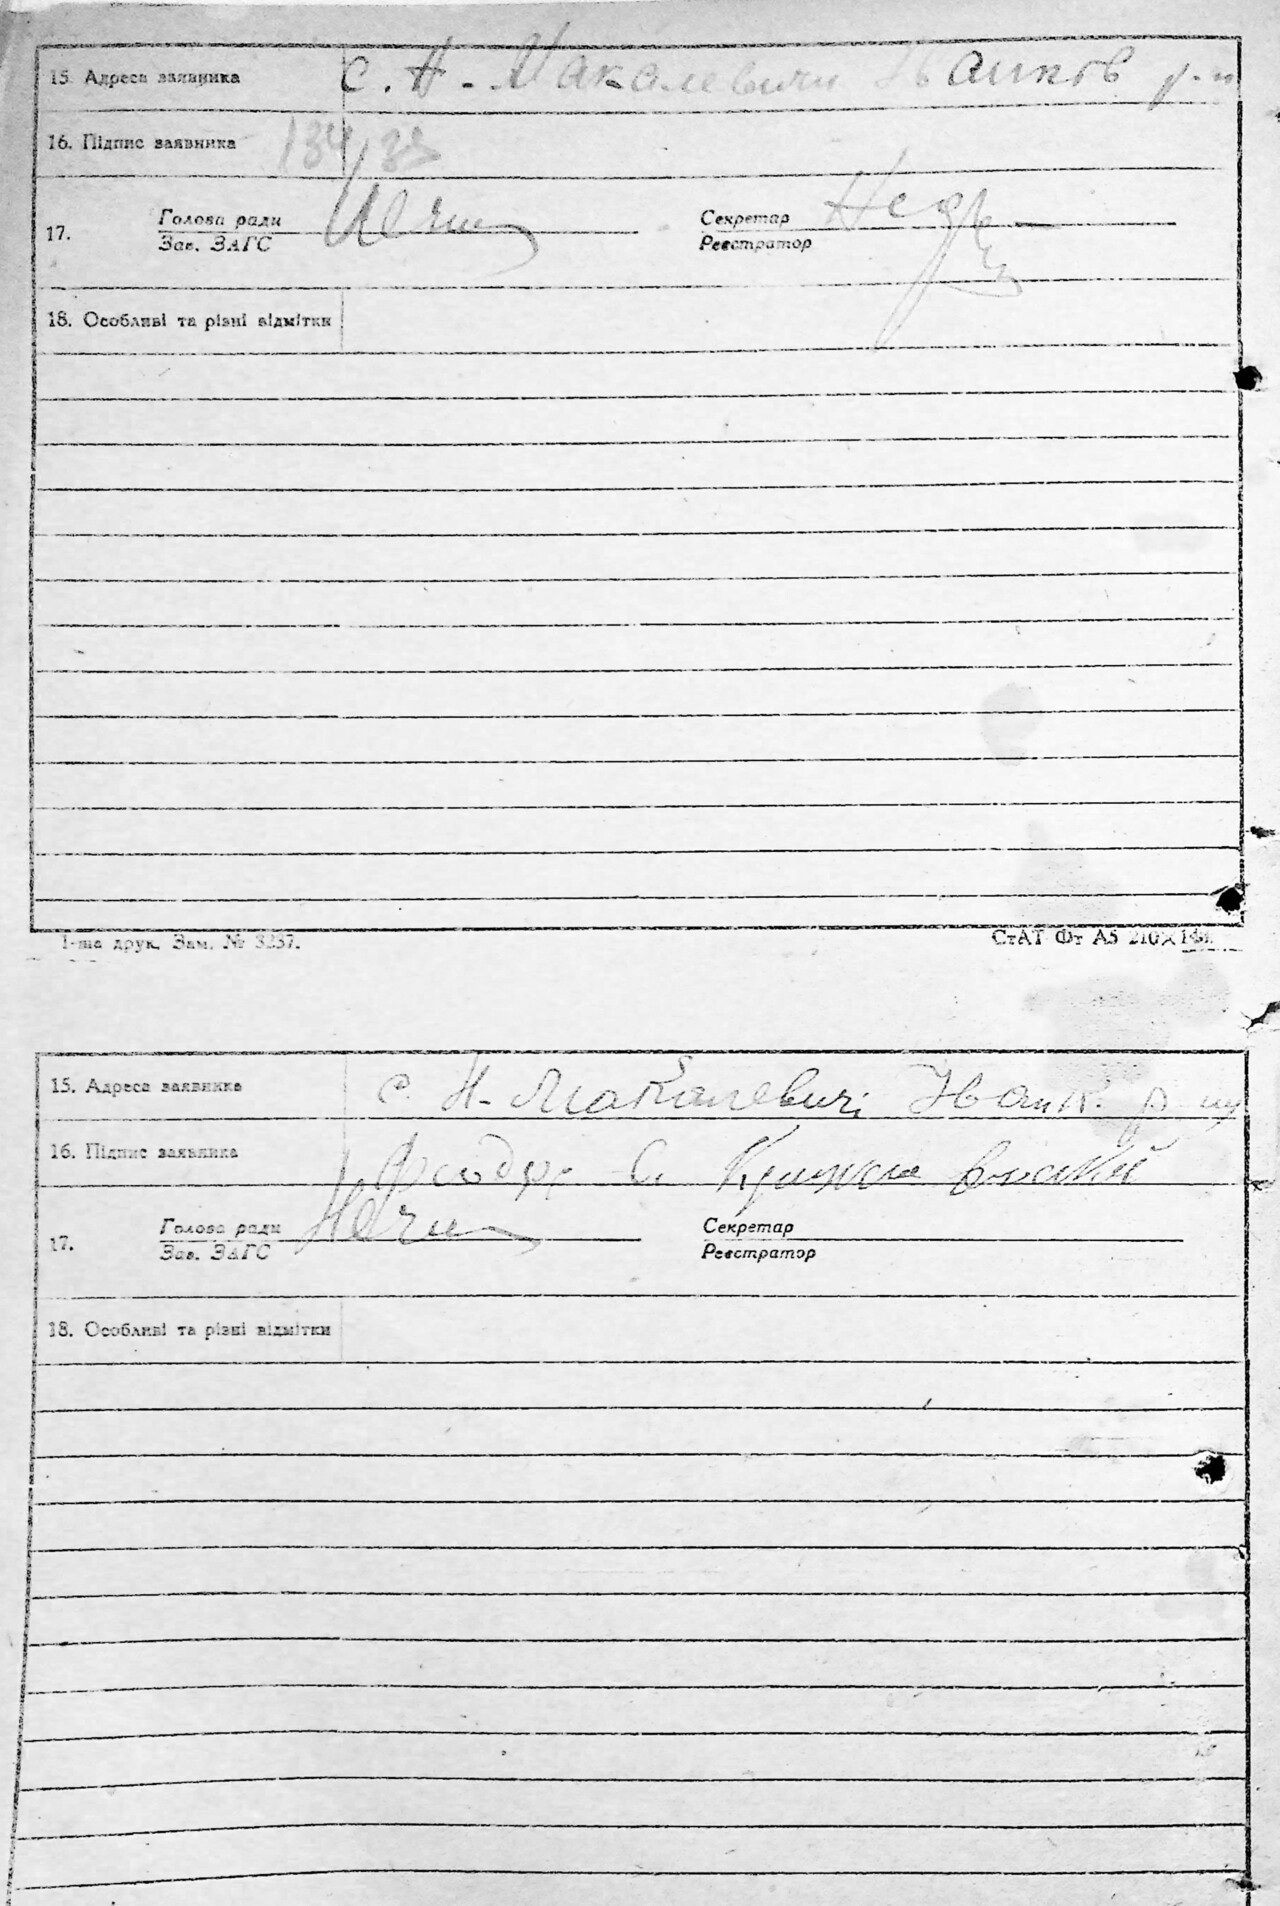 15. Адреса заявника с. Н-Макалевичи Іванків р-н
16. Підпис заявника
17. Голова ради Секретар
Зав. ЗАГС Реєстратор
18. Особливі та різні відмітки
1-ша друк. Зам. № 3257.
СтАТ Фт А5 210×148.
15. Адреса заявника с. Н-Макалевичі Іванк. р-ну
16. Підпис заявника
17. Голова ради Секретар
Зав. ЗАГС Реєстратор
18. Особливі та різні відмітки